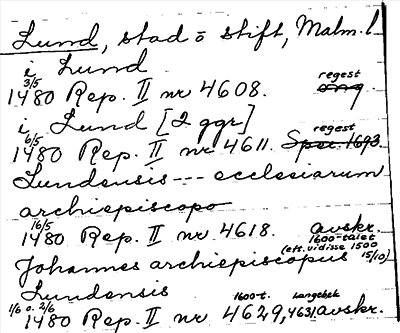 Lund, stad o stift, Malm. l.
i Lund
3/5 1480 Rep. II nr 4608. regest
i Lund [2 ggr]
6/5 1480 Rep. II nr 4611. regest Spec 1693.
Lundensis --- ecclesiarum
archiepiscopo
16/5 1480 Rep. II nr 4618. avskr. 1600-talet
(eft. vidisse 1500 15/10)
Johannes archiepiscopus
Lundensis
1/6 o. 2/6 1480 Rep. II nr 4629, 4631 avskr. 1600-t. Langebek